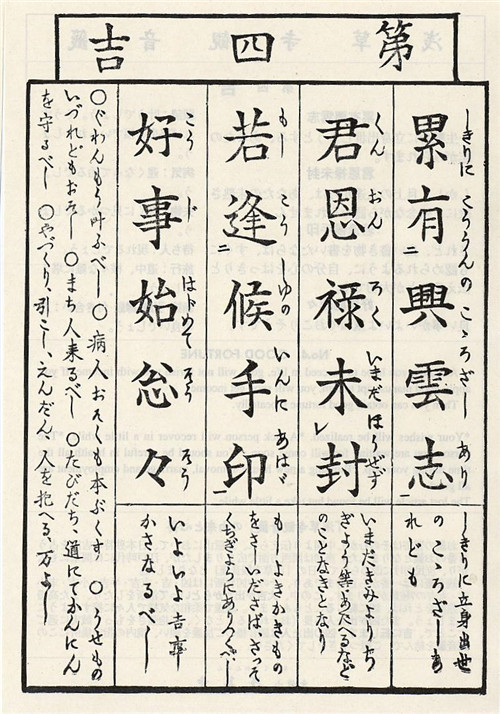 第四吉
しきりに こううんの こころざし あり
累有二興雲志
しきりに立身出世
のこころざしあ
れども
くん おん ろく いまだ ほうぜず
君恩禄未レ封
いまだきみよりち
ぎょう等あたるなど
のことなきとなり
もし こう ゆの いんに
若逢二候手印
もしよきかきもの
をさいださば、さつそ
くちぎょうにありつくべし
こう じ はじめて そう そう
好事始忩々
いよいよ吉事
かさなるべし
○ぐわんもう叶ふべし ○病、おそくも本ぷくす ○うせもの
いづれどもおそし ○まち人来るべし ○たびだち、道にてかんにん
を守るべし ○やづくり、引こし、えんだん、人を抱へる、万よし